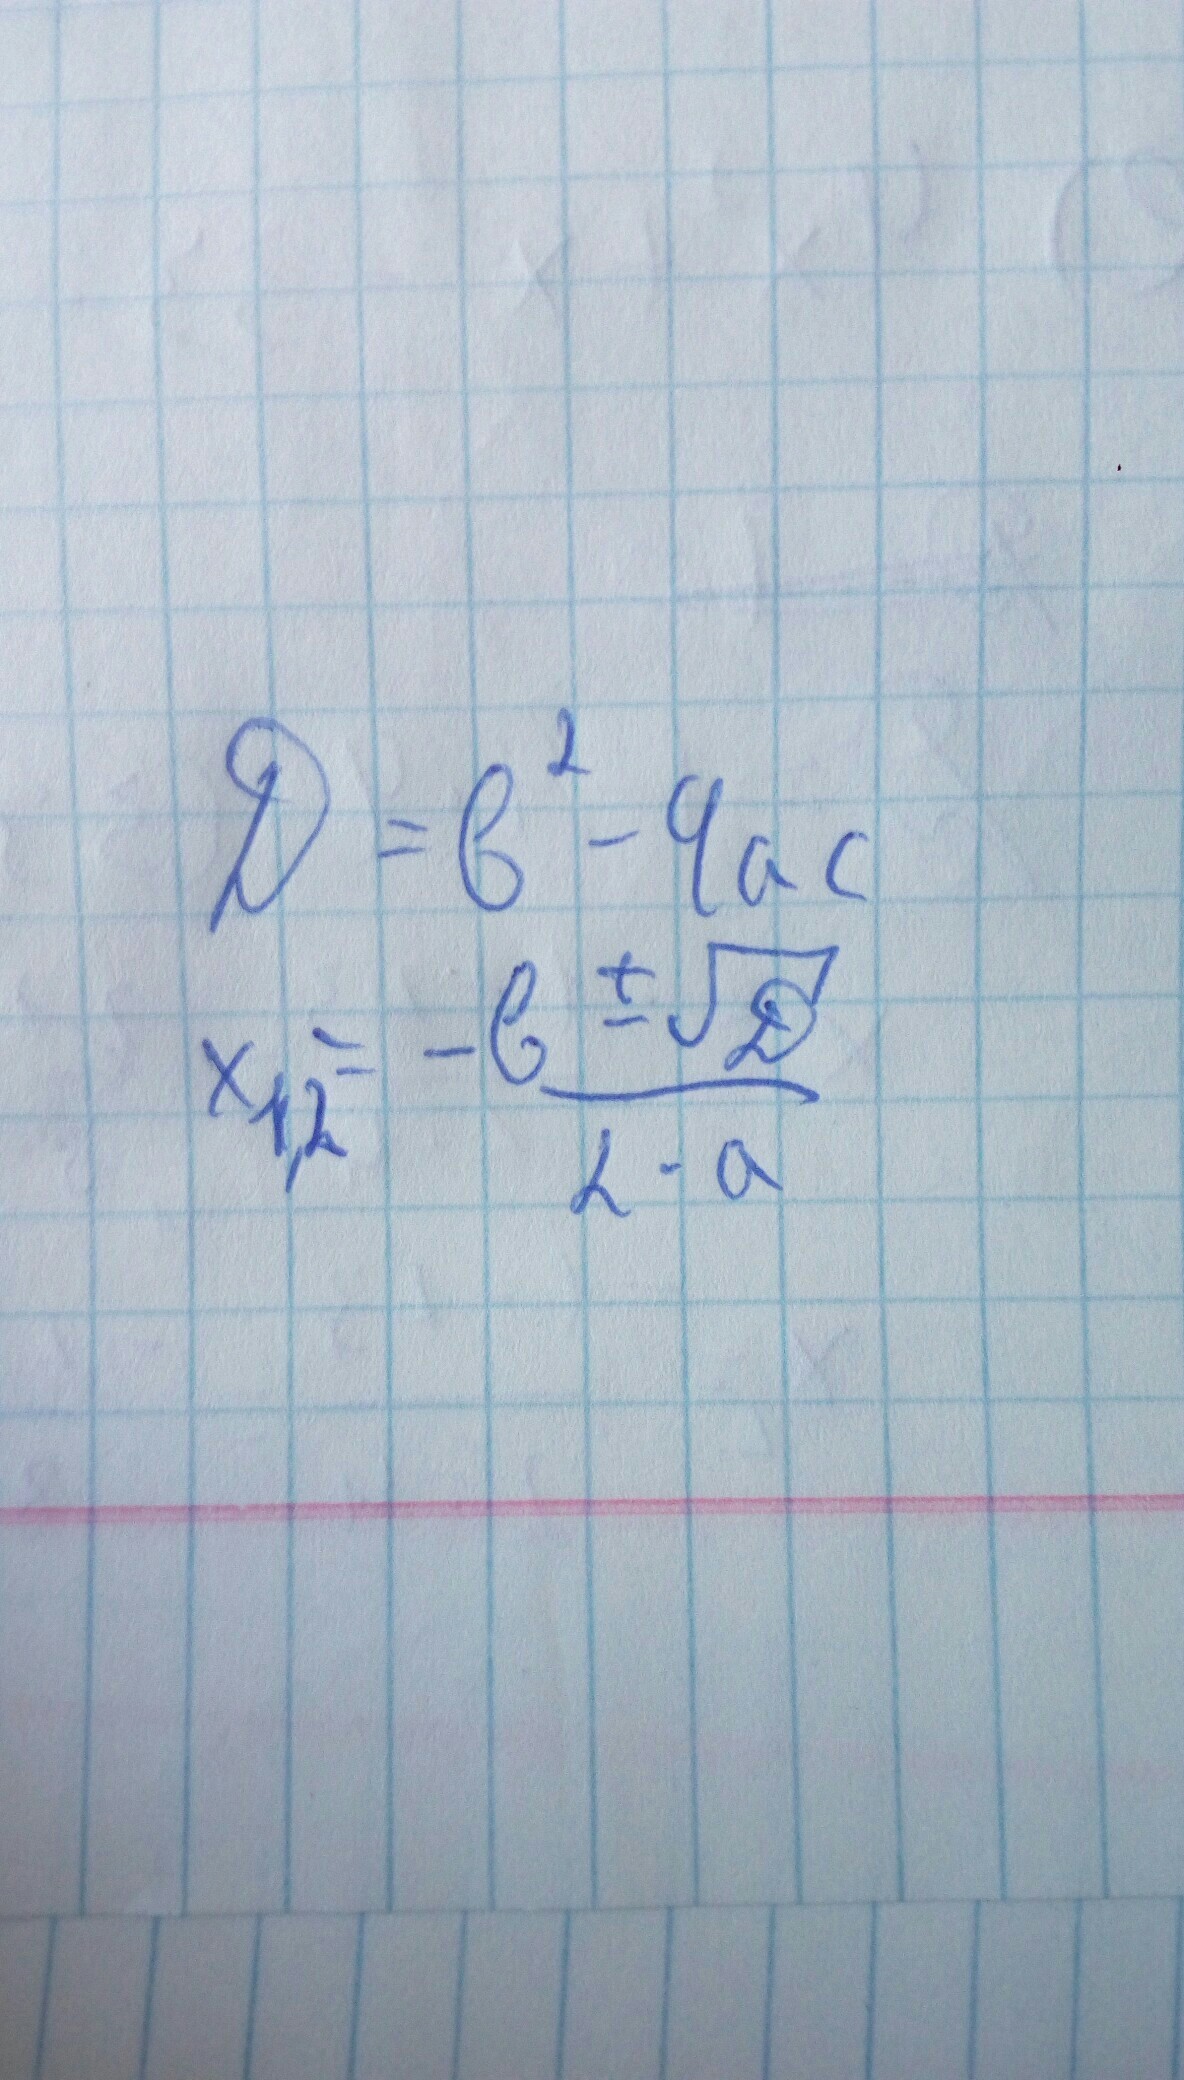 D = b² - 4ac
x₁,₂ = -b ± √D / 2 · a